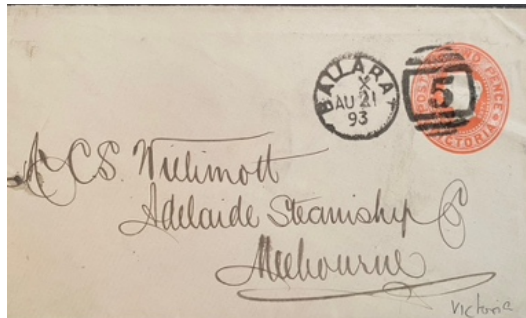 BALLARAT
X
AU 21
93
5
POSTAGE PENCE
VICTORIA
C.S. Willimott
Adelaide Steamship Co
Melbourne
Victoria